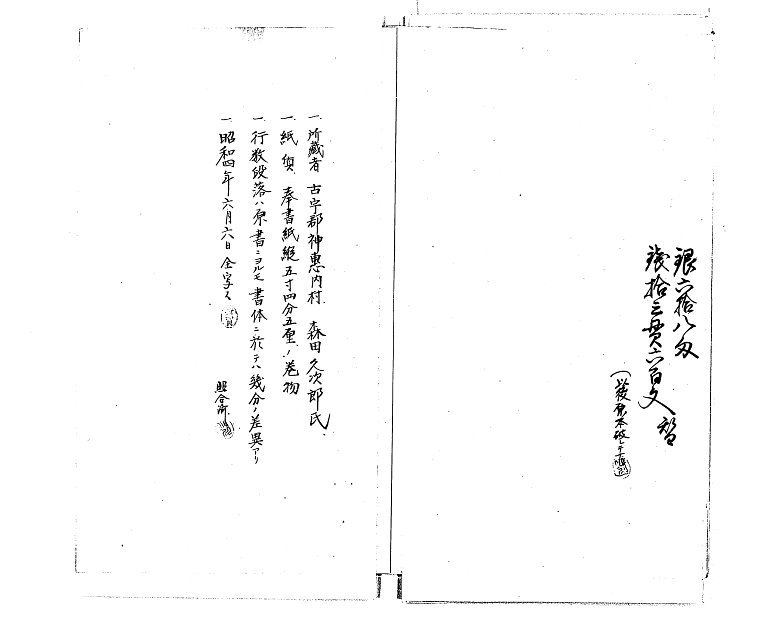 銀六拾八匁
残拾三貫六百文
一、所蔵者 古宇郡神惠内村 森田久次郎氏
一、紙質 奉書紙縦五寸四分五厘ノ巻物
一、行数段落ハ原書ニヨルモ書体ニ於テハ幾分ノ差異アリ
一、昭和四年六月六日全写ス
照合済